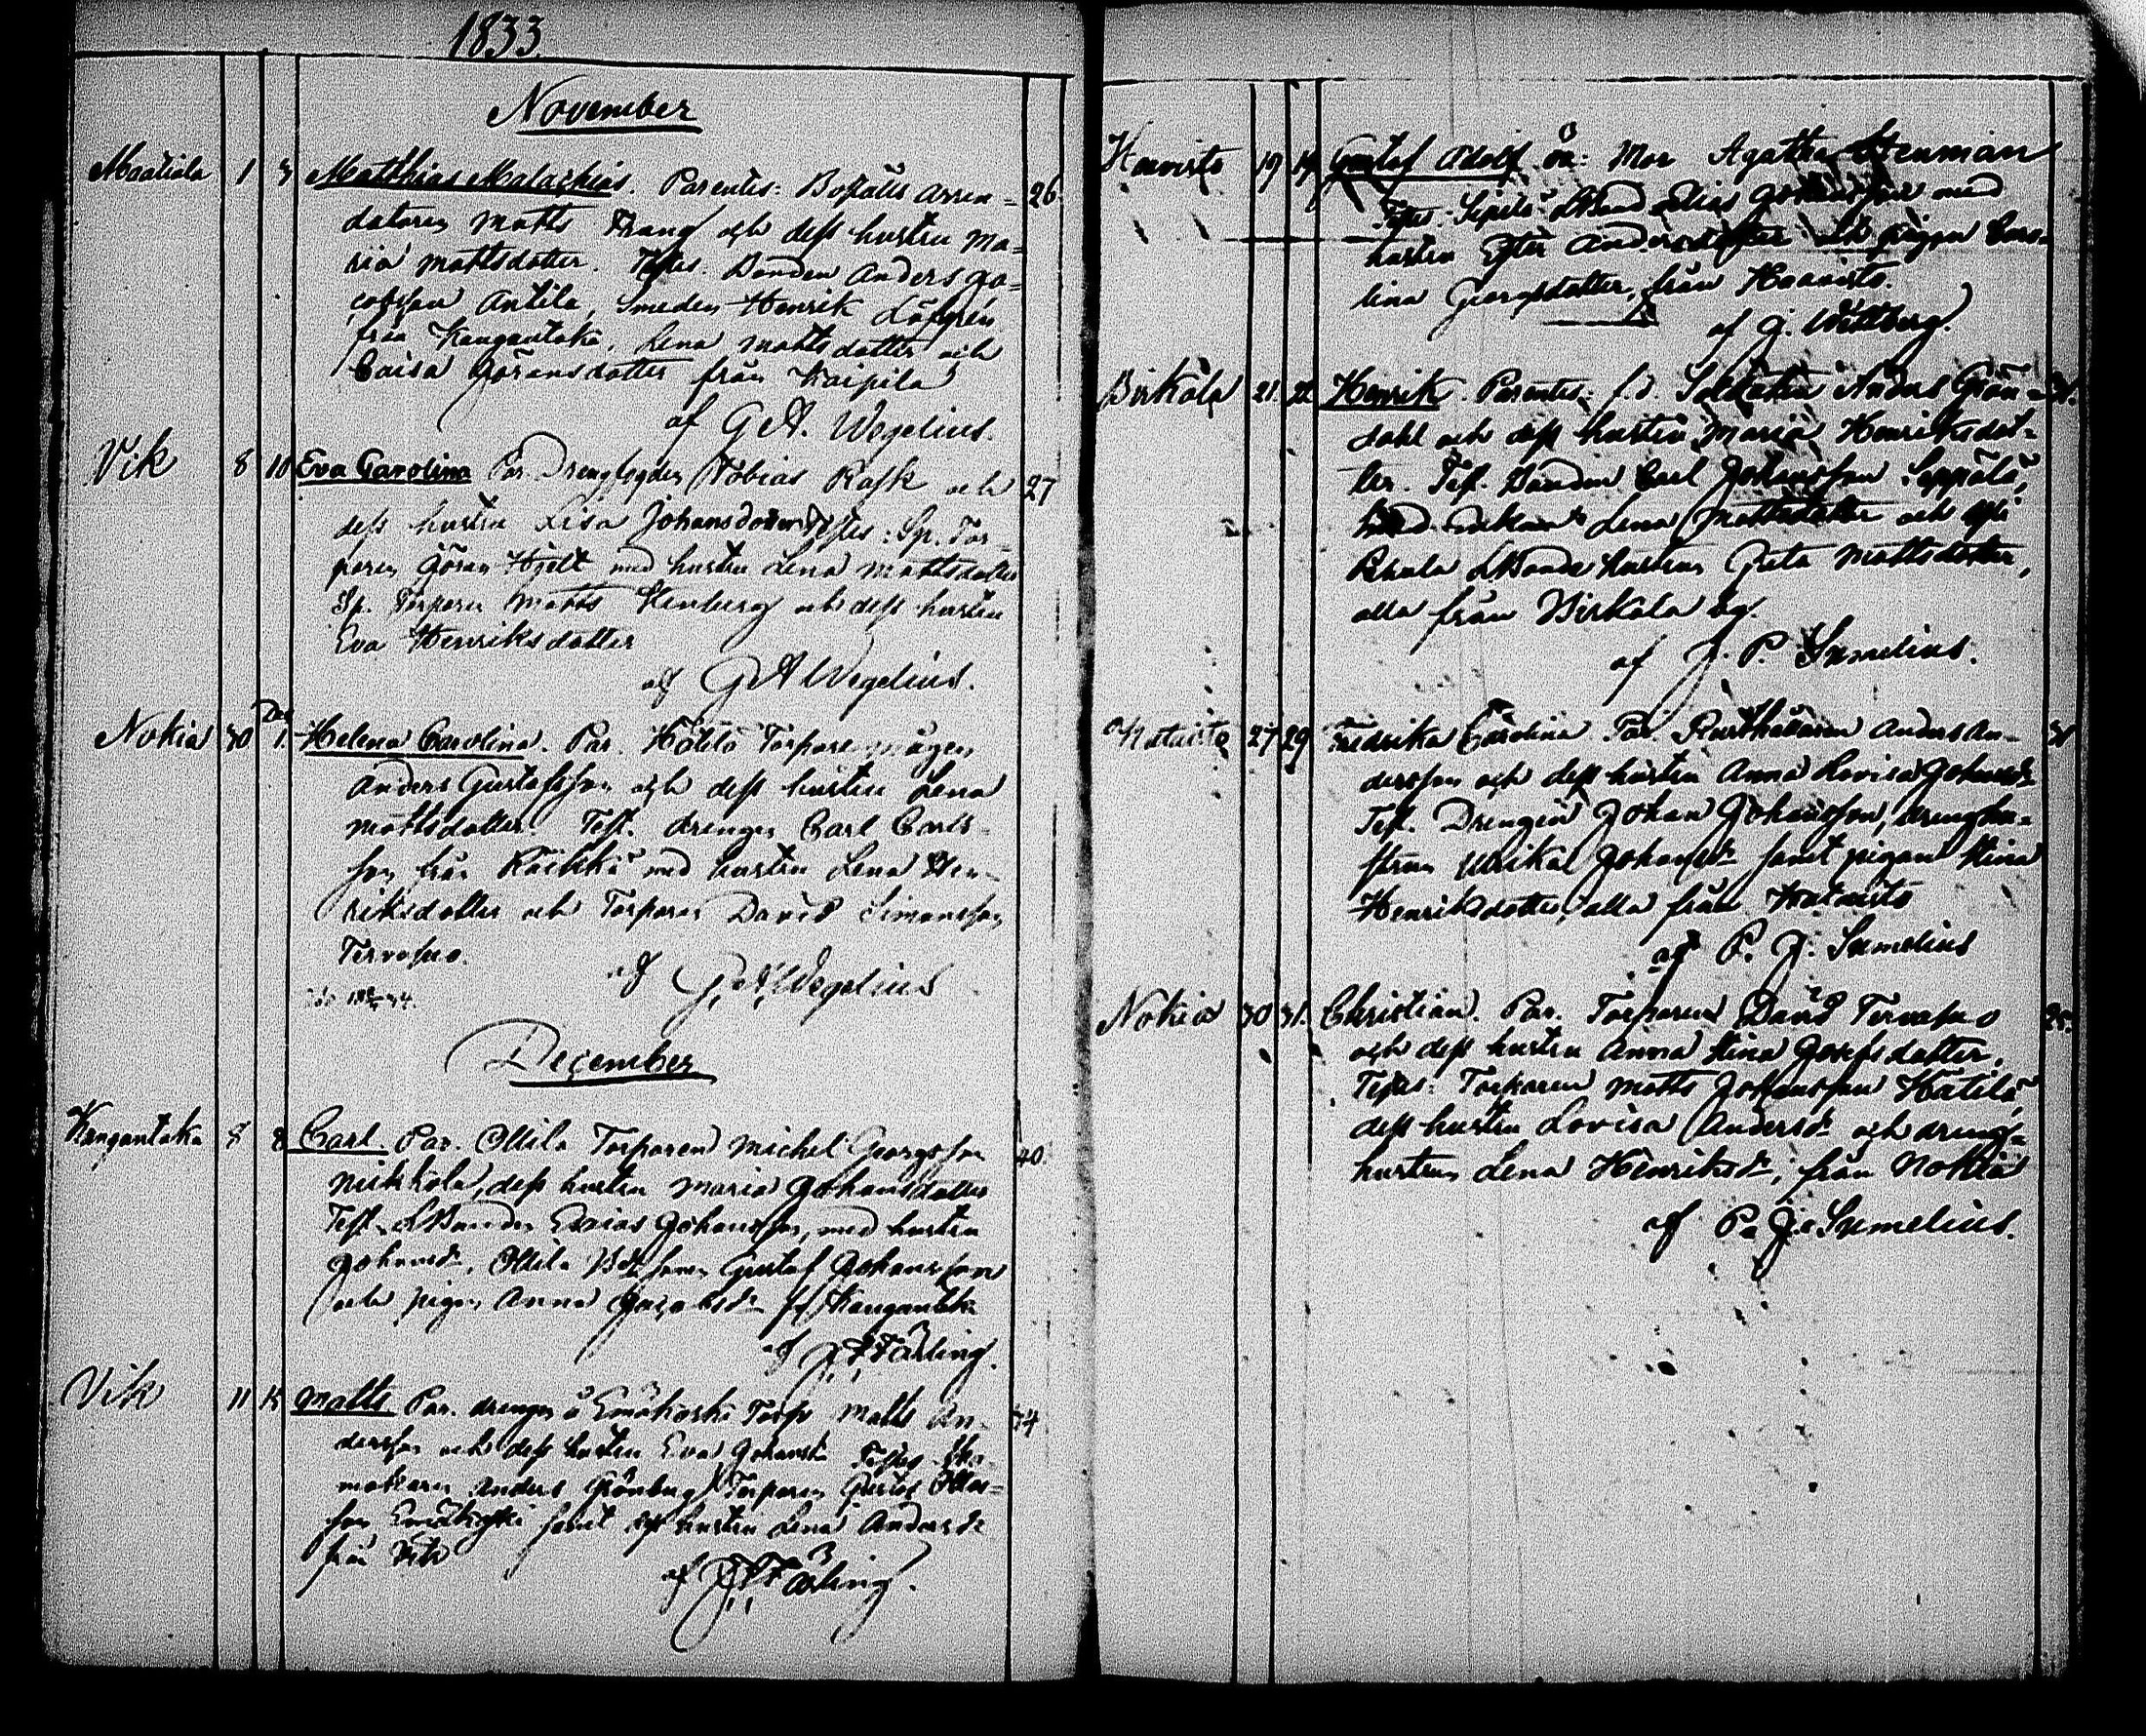 1833.
November
Maatiala 1 3 Matthias Malachias. Parentes: Boställs arren= 26
datoren Matts Krang och dess hustru Ma=
ria Mattsdotter. Testes: Bonden Anders Ja=
cobsson Antila, Smeden Henrik Löfgrén
från Kangantaka, Lena Mattsdotter och
Caisa Göransdotter från Kaipila
af G A. Wegelius.
Vik 8 10 Eva Carolina Par. Tobias Rask och 27
dess hustru Lisa Johansdotter Testes: Sp. Tor=
paren Göran Hjelt med hustru Lena Mattsdotter
Sp. Torparen Matts Stenberg och dess hustru
Eva Henriksdotter
af G A Wegelius.
Nokia 30 Dec 1. Helena Carolina. Par. Torpare mågen
Anders Gustafsson och dess hustru Lena
Mattsdotter. Test. drengen Carl Carls=
son från med hustru Lena Hen=
riksdotter och Torparen David Simonsson
Tervasuo.
af G. A. Wegelius
December
Kangantaka 8 8 Carl. Par. Ollila Torparen Michel Georgsson 40.
Mikkola, dess hustru Maria Johansdotter
Test. LBonden Esaias Johansson, med hustru
Johansdr, Ollila Gustaf Johansson
och pigan Anna Jacobsdr Kangantaka
af Färling.
Vik 11 15 Matts Par. drengen å Emäkoski Torp Matts An= 34
dersson och dess hustru Eva Johansdr Testes Sko=
makaren Anders Grönberg Torparen Gustaf
son Emäkoski samt dess hustru Lena Andersdr
från Vik
af Färling.
Haavisto 19 19 Gustaf Adolf oä: Mor Agatha Stenman
Testes: Seppilä LBond Elias Johansson med
hustru Ester Andersdotter och pigan Caro=
lina Georgsdotter, från Haavisto.
af J. Wallberg.
Birkala 21. 22 Henrik. Parentes: f.d. Soldaten Anders Grön= 31.
dahl och dess hustru Maria Henriksdot=
ter. Test. Bonden Carl Johansson Seppälä,
Bond enkan Lena Mattsdotter och
Pakula LBonde hustrun Greta Mattsdotter,
alla från Birkala by.
af J. P. Sumelius.
Hatavisto 27 29 Fredrika Carolina Par. Rusthållaren Anders An=
dersson och dess hustru Anna Lovisa Johansdr
Test. Drengen Johan Johansson, drenghu=
strun Ulrika Johansdr samt pigan Stina
Henriksdotter, alla från Hatavisto
af P. J. Sumelius
Nokia 30 31. Christian. Par. Torparen David Tervasuo 25.
och dess hustru Anna Stina Josefsdotter.
Testes: Torparen Matts Johansson Katila,
dess hustru Lovisa Andersdr och dreng=
hustrun Lena Henriksdr, från Nokia
af P. J. Sumelius.